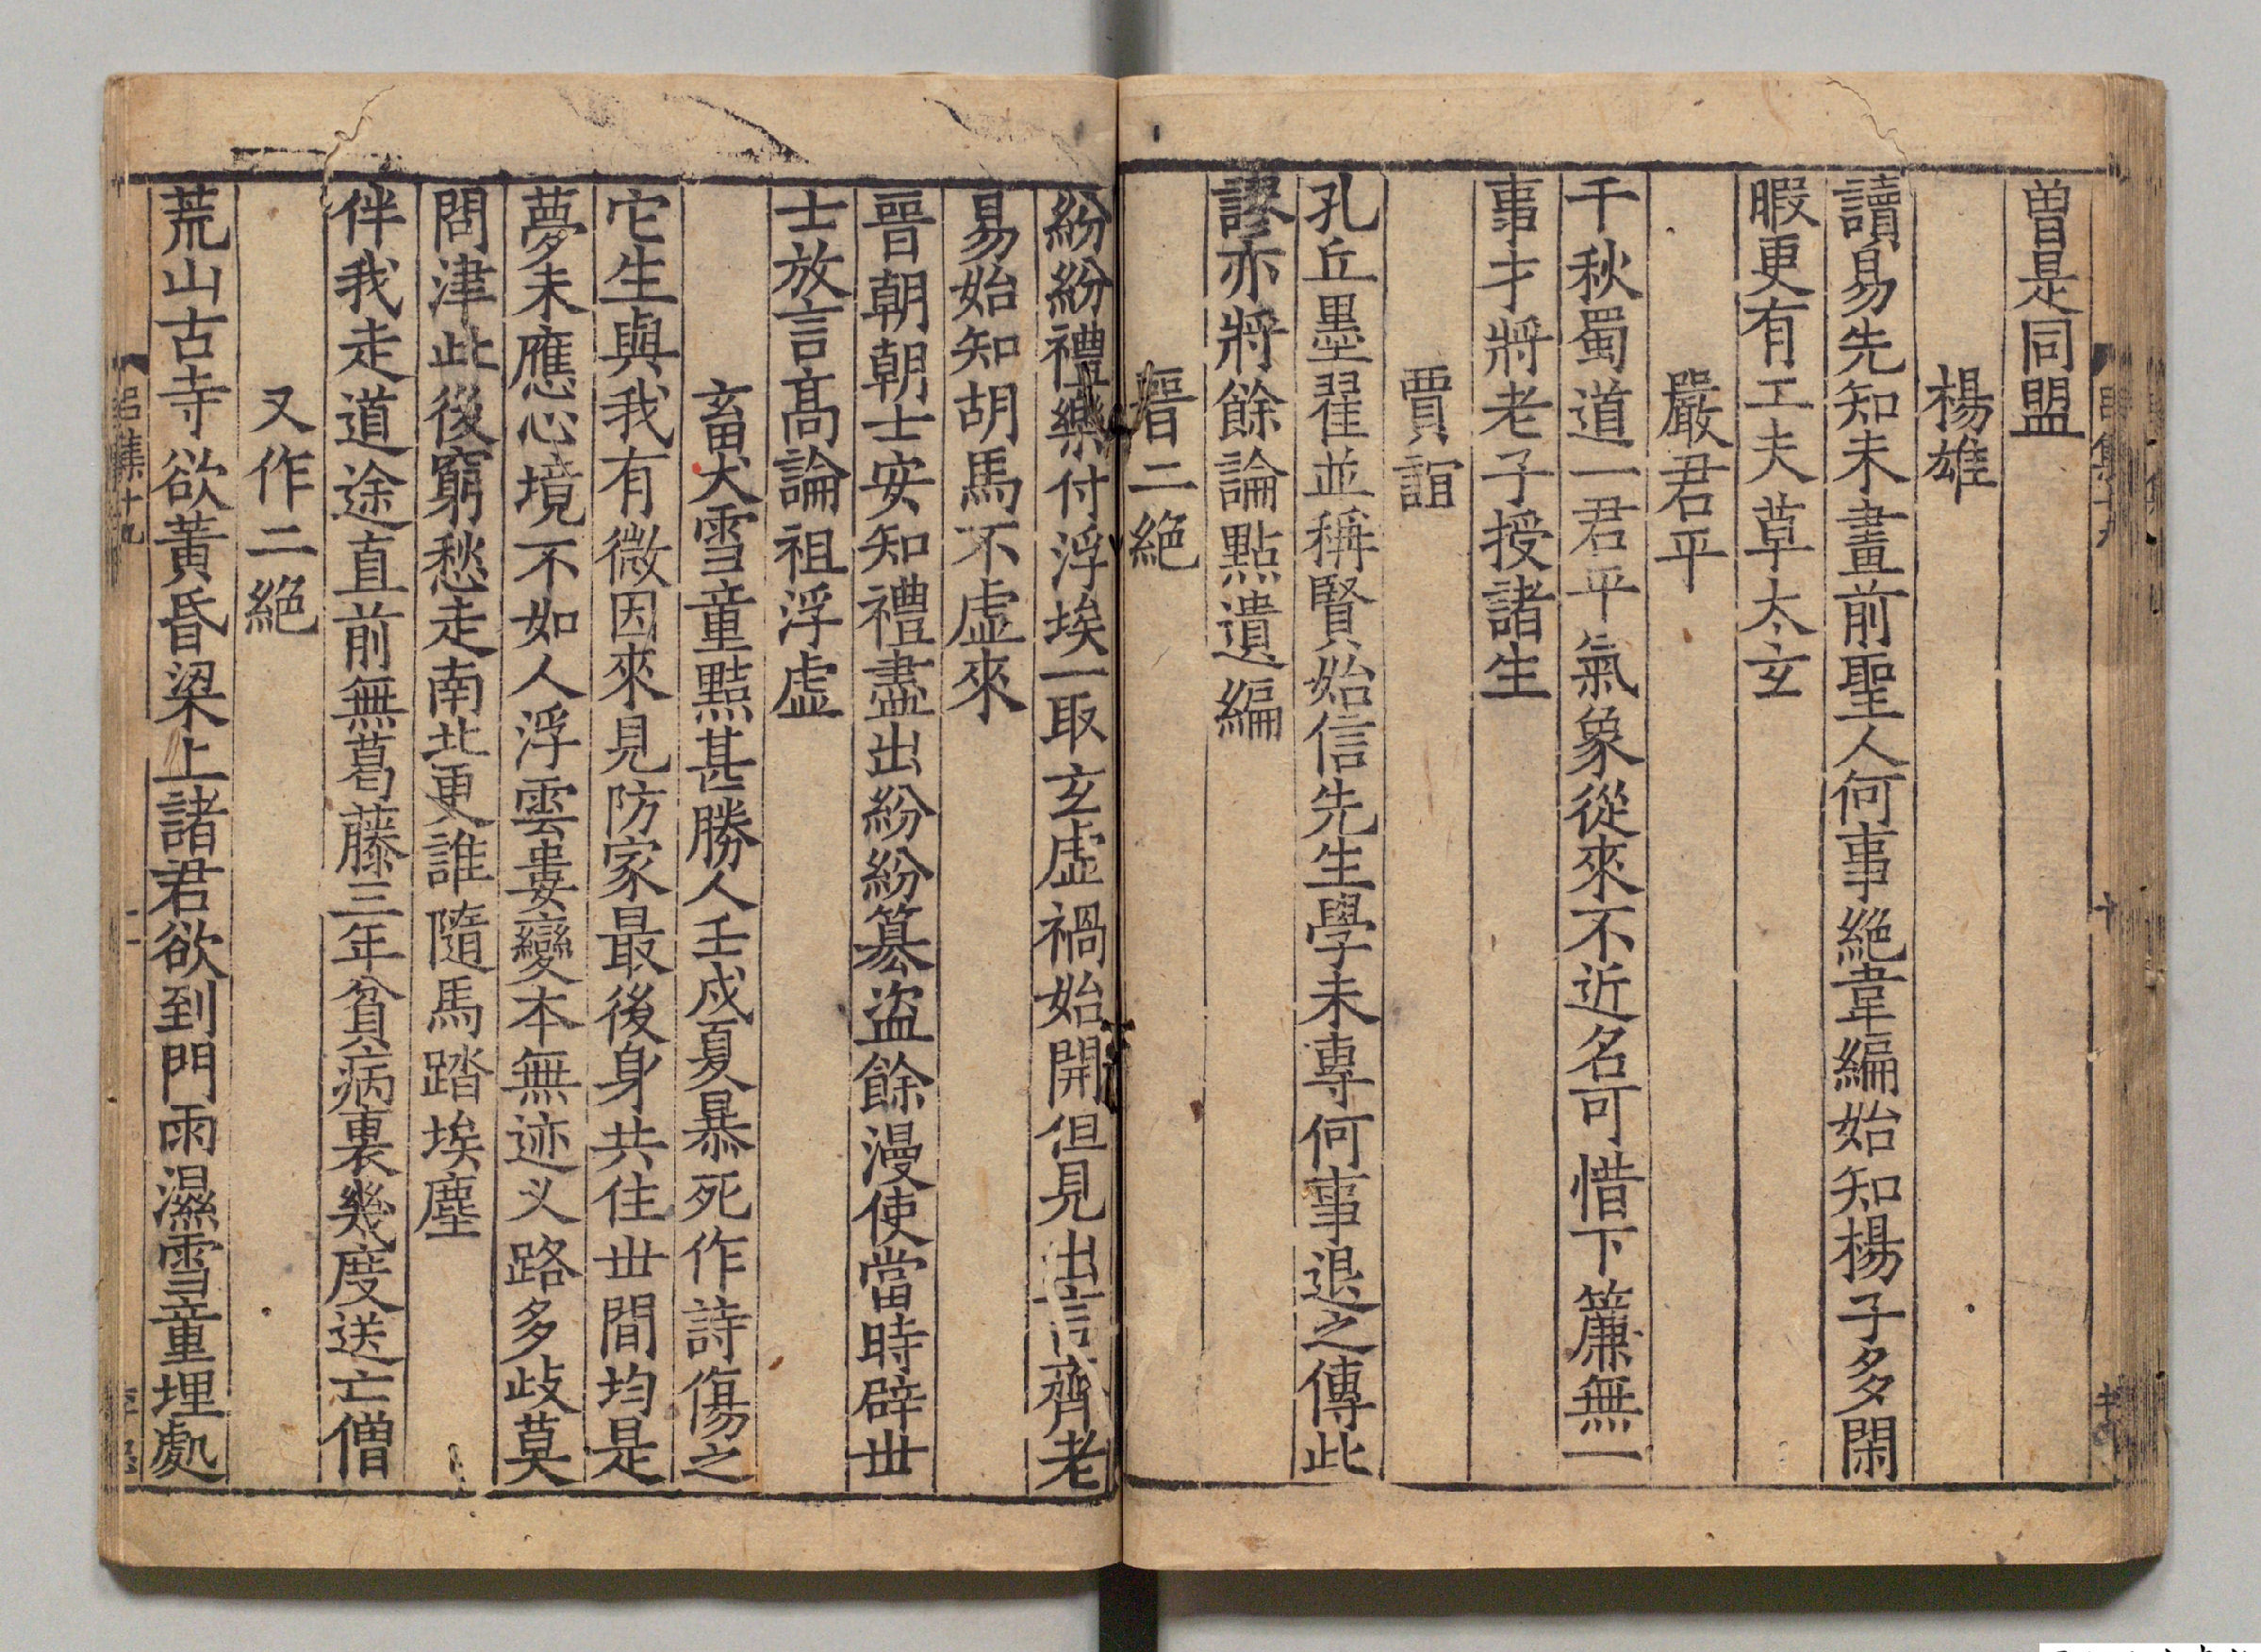 曾是同盟
楊雄
讀易先知未畫前聖人何事絶韋編始知楊子多閑
暇更有工夫草太玄
嚴君平
千秋蜀道一君平氣象從來不近名可惜下簾無一
事才將老子授諸生
賈誼
孔丘墨翟並稱賢始信先生學未專何事退之傳此
謬亦將餘論點遺編
晉二絶
紛紛禮樂付浮埃一取玄虛禍始開但見出言齊老
易始知胡馬不虛來
晉朝朝士安知禮盡出紛紛篡盗餘漫使當時辟丗
士放言髙論祖浮虛
畜犬雪童黠甚勝人壬戍夏暴死作詩傷之
它生與我有微因來見防家最後身共住丗間均是
夢未應心境不如人浮雲婁變本無迹乂路多歧莫
問津此後窮愁走南北更誰隨馬踏埃塵
伴我走道途直前無葛藤三年貧病裏幾度送亡僧
又作二絶
荒山古寺欲黃昏梁上諸君欲到門雨濕雪童埋處